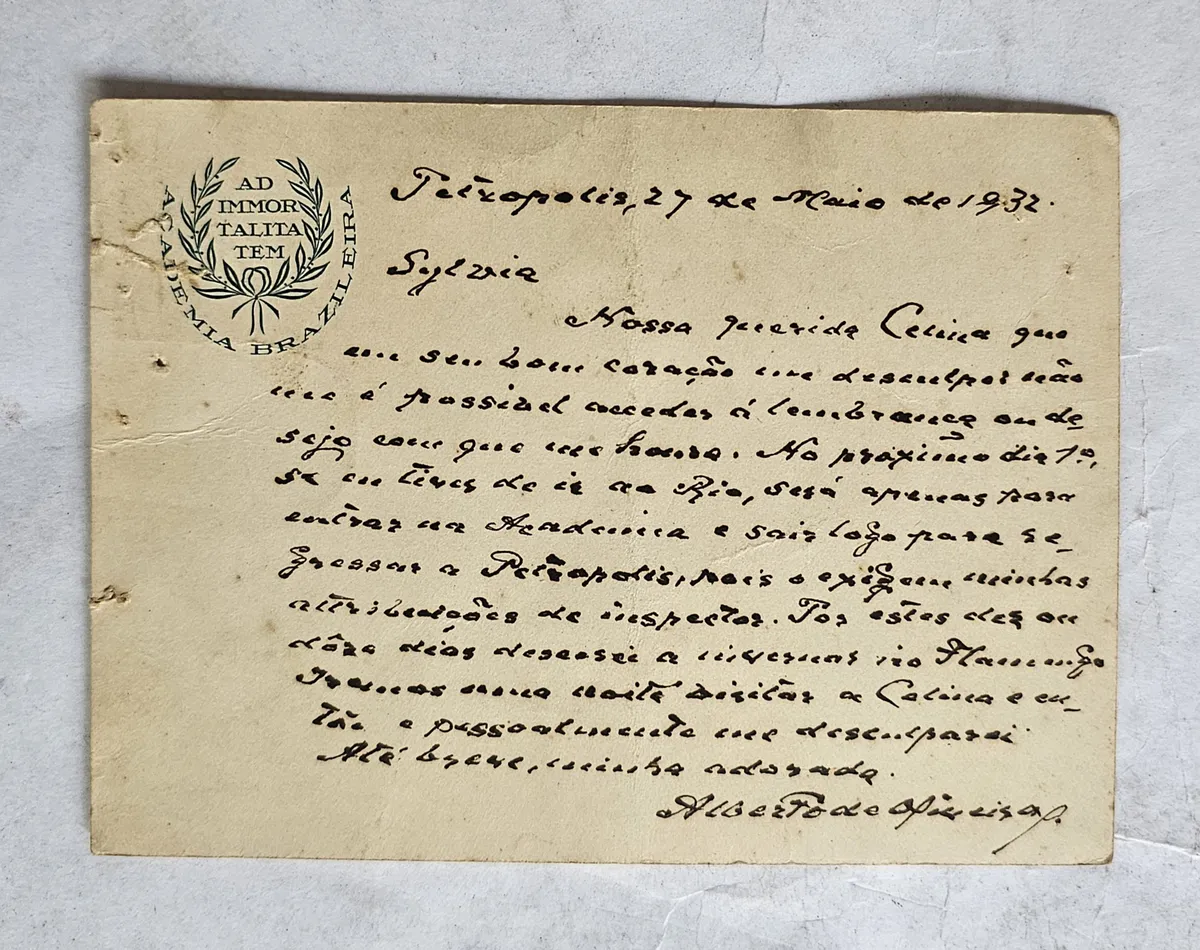 AD
IMMOR
TALITA
TEM
ACADEMIA BRAZILEIRA
Petropolis, 27 de Maio de 1932.
Sylvia
Nossa querida Celina que
em seu bom coração me desculpe: não
me é possivel acceder á lembrança ou de-
sejo com que me honra. No proximo dia 1º,
se eu tiver de ir ao Rio, será apenas para
entrar na Academia e sair logo para re-
gressar a Petropolis, pois o exigem minhas
attribuições de inspector. Por estes dez ou
dôze dias descerei a invernar no Flamengo
Iremos uma noite visitar a Celina e en-
tão e pessoalmente me desculparei
Até breve, minha adorada.
Alberto de Oliveira